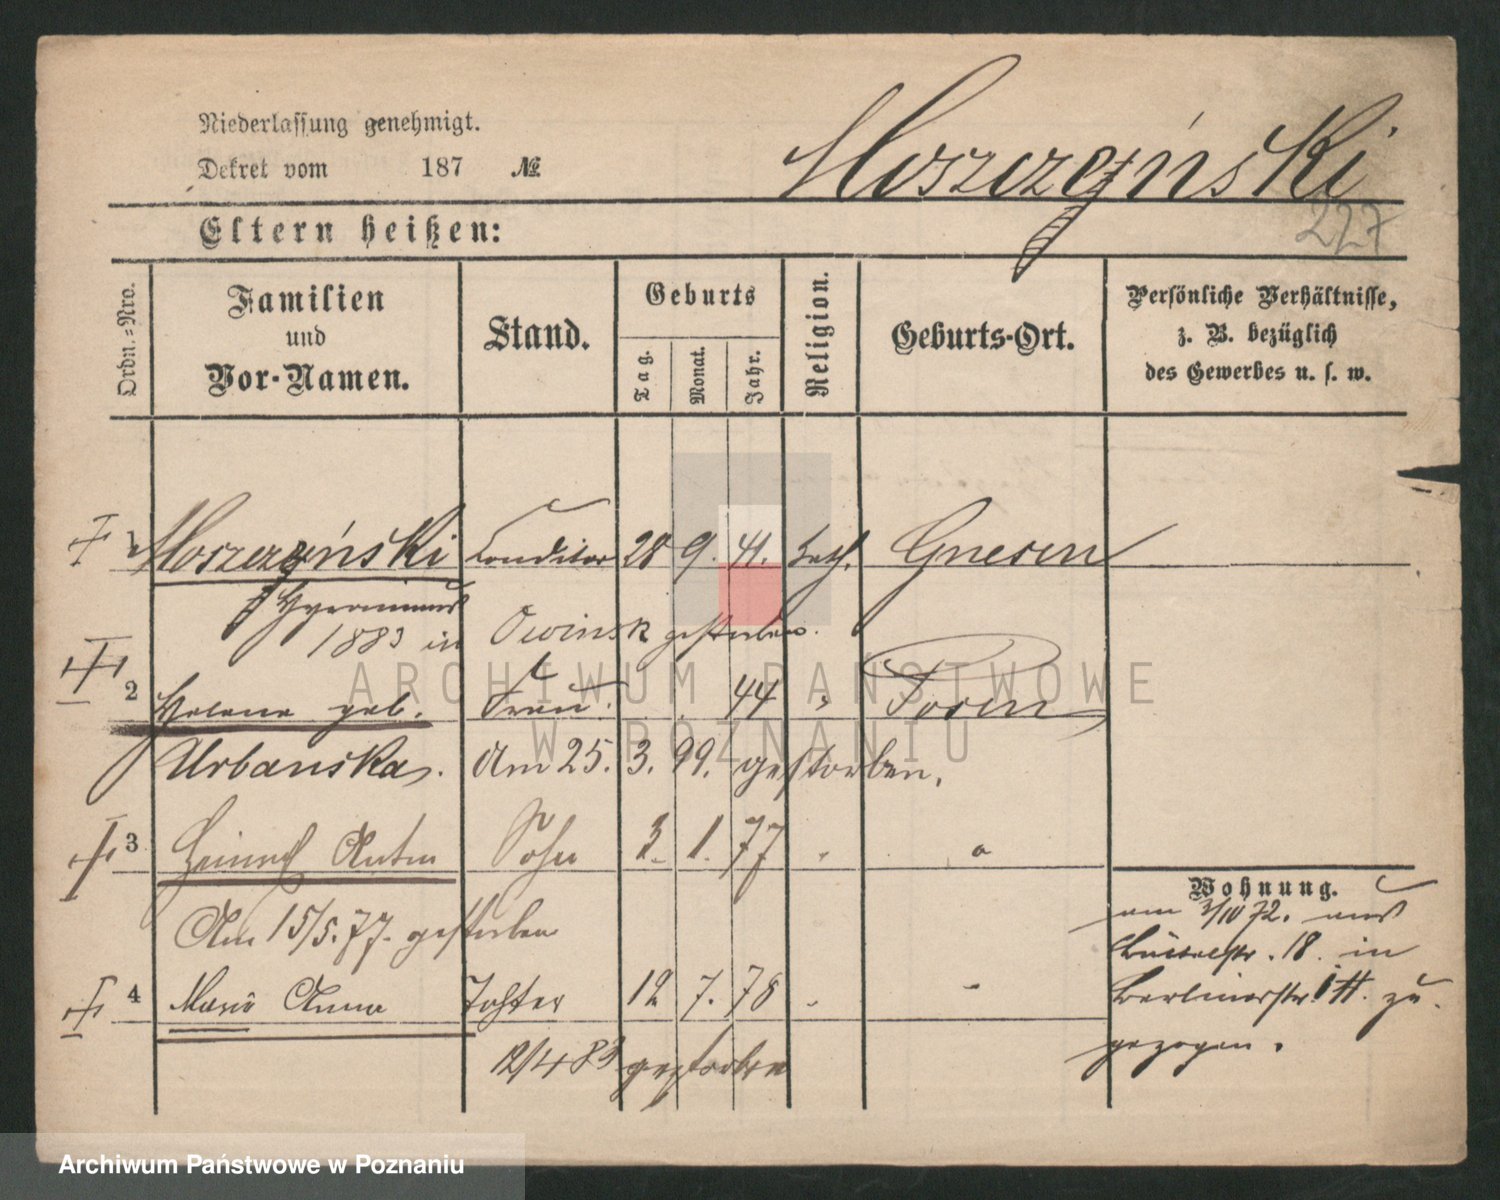 Niederlassung genehmigt.
Dekret vom 187 №
Moszczyński
227
Eltern heißen:
Ordn.-Nro.
Familien
und
Vor-Namen.
Stand.
Geburts
Tag.
Monat.
Jahr.
Religion.
Geburts-Ort.
Persönliche Verhältnisse,
z. B. bezüglich
des Gewerbes u. s. w.
1 Moszczyński Conditor 28 9. 41. kath. Gnesen
1883 in Owinsk gestorben.
2 Helene geb. Frau. 44 " Posen
Urbanska. Am 25. 3. 99. gestorben.
3 Heinrich Anton Sohn 3. 1. 77
Am 15/5. 77. gestorben
4 Maria Anna Tochter 12 7. 78
12/4 83 gestorben
Wohnung.
am 3/10 72. aus
18. in
Berlinerstr. zu-
gezogen.
ARCHIWUM PAŃSTWOWE
W POZNANIU
Archiwum Państwowe w Poznaniu